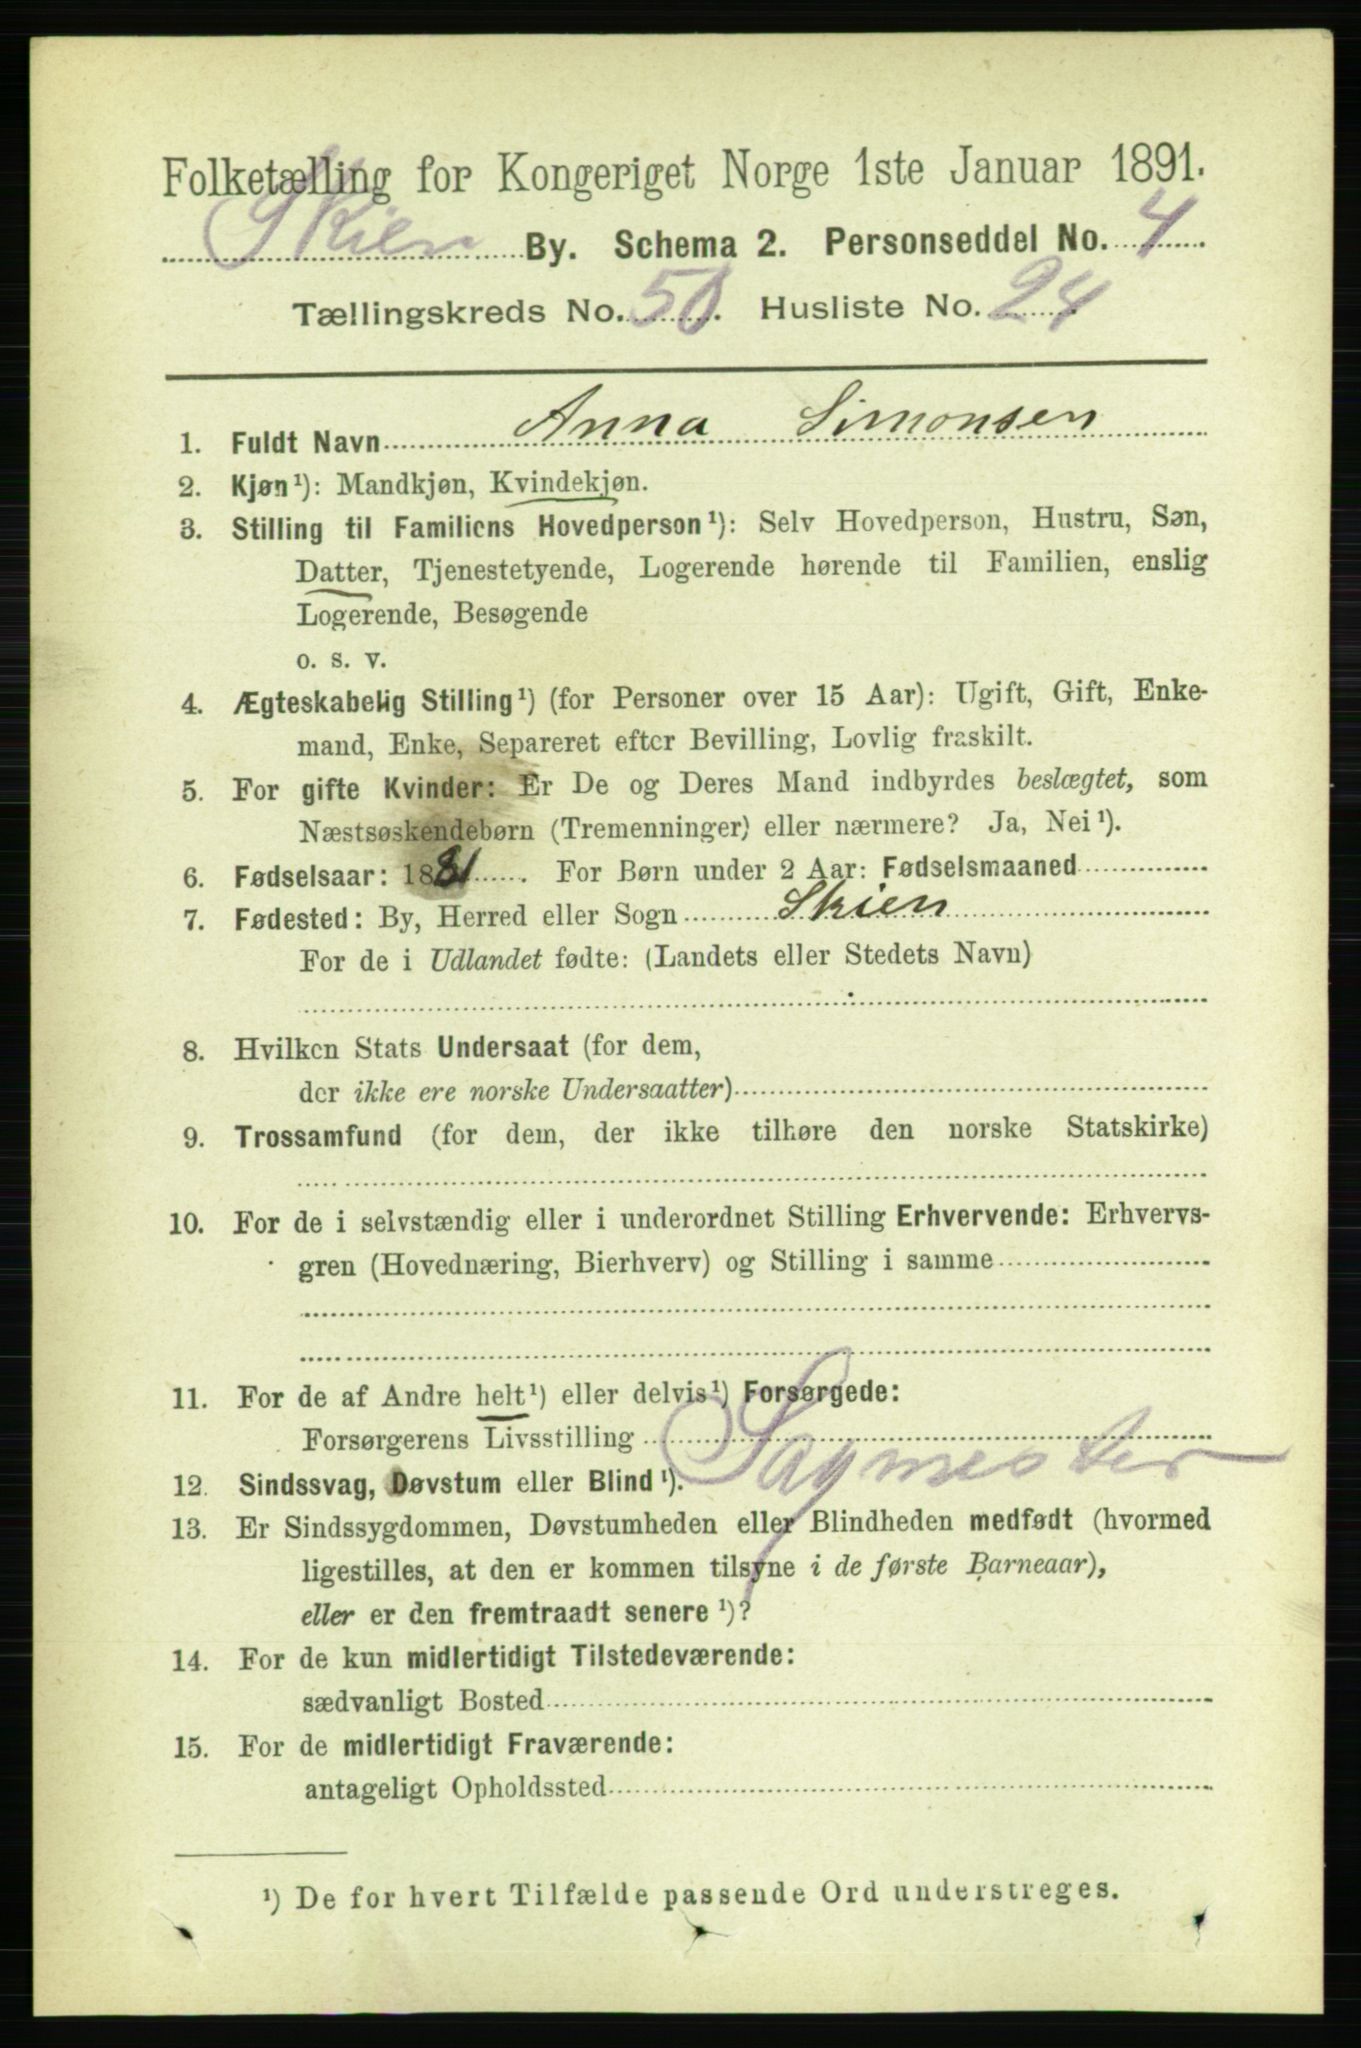 Folketælling for Kongeriget Norge 1ste Januar 1891.
Skien By. Schema 2. Personseddel No. 4
Tællingskreds No. 50. Husliste No. 24
1. Fuldt Navn Anna Simonsen
2. Kjøn¹): Mandkjøn, Kvindekjøn.
3. Stilling til Familiens Hovedperson¹): Selv Hovedperson, Hustru, Søn,
Datter, Tjenestetyende, Logerende hørende til Familien, enslig
Logerende, Besøgende
o. s. v.
4. Ægteskabelig Stilling¹) (for Personer over 15 Aar): Ugift, Gift, Enke-
mand, Enke, Separeret efter Bevilling, Lovlig fraskilt.
5. For gifte Kvinder: Er De og Deres Mand indbyrdes beslægtet, som
Næstsøskendebørn (Tremenninger) eller nærmere? Ja, Nei¹).
6. Fødselsaar: 1881. For Børn under 2 Aar: Fødselsmaaned
7. Fødested: By, Herred eller Sogn Skien
For de i Udlandet fødte: (Landets eller Stedets Navn)
8. Hvilken Stats Undersaat (for dem,
der ikke ere norske Undersaatter)
9. Trossamfund (for dem, der ikke tilhøre den norske Statskirke)
10. For de i selvstændig eller i underordnet Stilling Erhvervende: Erhvervs-
gren (Hovednæring, Bierhverv) og Stilling i samme
11. For de af Andre helt¹) eller delvis¹) Forsørgede:
Forsørgerens Livsstilling Sagmester
12. Sindssvag, Døvstum eller Blind¹).
13. Er Sindssygdommen, Døvstumheden eller Blindheden medfødt (hvormed
ligestilles, at den er kommen tilsyne i de første Barneaar),
eller er den fremtraadt senere¹)?
14. For de kun midlertidigt Tilstedeværende:
sædvanligt Bosted
15. For de midlertidigt Fraværende:
antageligt Opholdssted
¹) De for hvert Tilfælde passende Ord understreges.